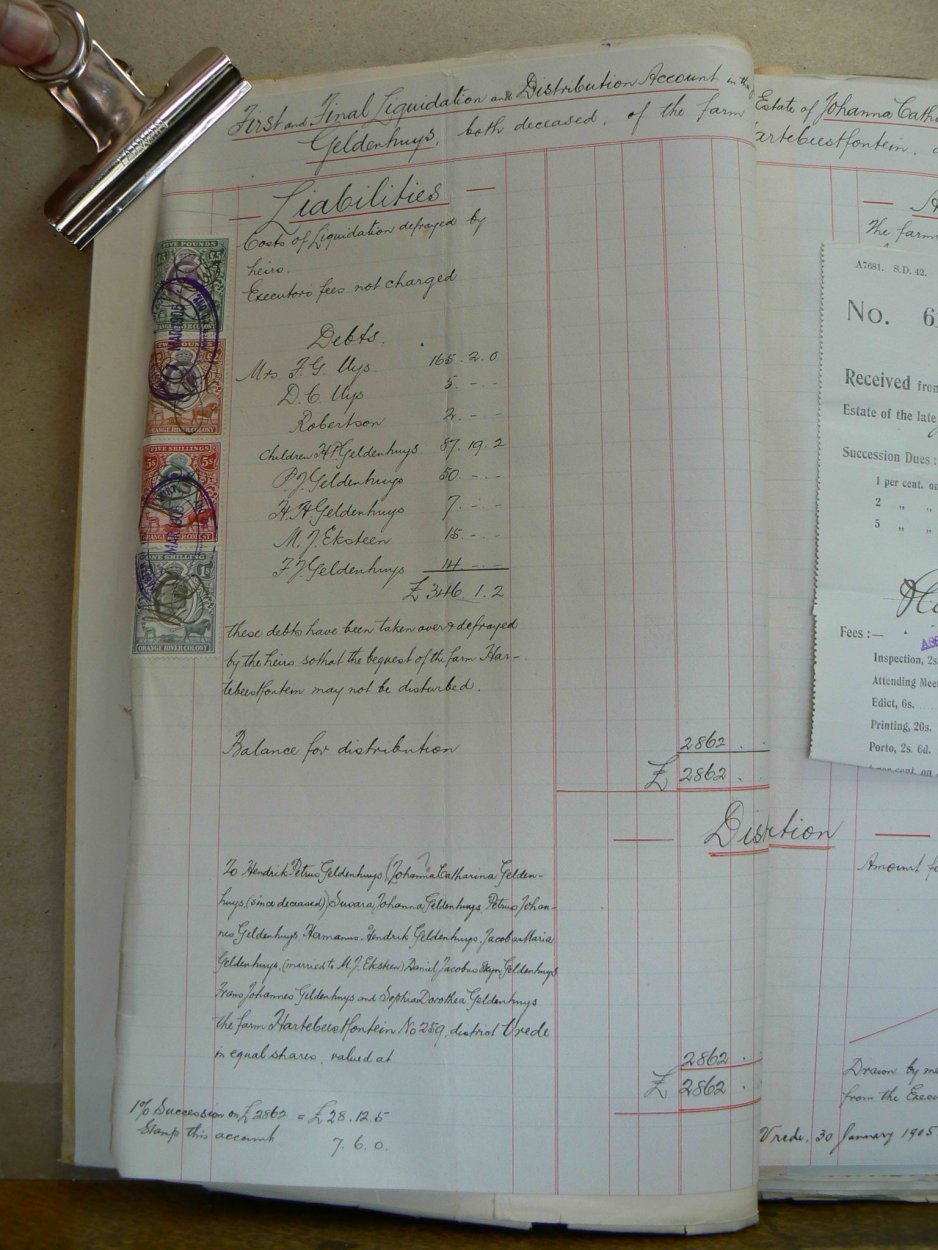 First and Final Liquidation and Distribution Account in the
Geldenhuys, both deceased, of the farm
Liabilities
Costs of Liquidation defrayed by
heirs.
Executors fees not charged
Debts.
Mrs F. G. Uys. 165. 2. 0
D. C. Uys 5. - -
Robertson 2. - -
Children H P Geldenhuys. 87. 19. 2
P J Geldenhuys 50. - -
H. H Geldenhuys 7. - -
M. J. Eksteen 15. - -
F J Geldenhuys 14 - -
£ 346. 1. 2
these debts have been taken over & defrayed
by the heirs so that the bequest of the farm Har-
tebeestfontein may not be disturbed.
Balance for distribution 2862 . .
£ 2862 .
To Hendrik Petrus Geldenhuys (Johanna Catharina Gelden-
huys, (since deceased) Susara Johanna Geldenhuys, Petrus Johan-
nes Geldenhuys, Hermanus Hendrik Geldenhuys, Jacoba Maria
Geldenhuys, (married to M. J. Eksteen) Daniel Jacobus Geldenhuys
Frans Johannes Geldenhuys and Sophia Dorothea Geldenhuys
the farm Hartebeestfontein No 259, district Vrede
in equal shares, valued at 2862 .
£ 2862 .
1% Succession on £2862 = £28. 12. 5
Stamp this account 7. 6. 0.
FIVE POUNDS
£5 £5
ORANGE RIVER COLONY
ORANGE RIVER COLONY
FIVE SHILLINGS
5s 5s
ORANGE RIVER COLONY
ONE SHILLING
1s
ORANGE RIVER COLONY
Estate of Johanna Cath
artebeestfontein.
The farm
A7681. S.D. 42.
No. 6
Received from
Estate of the late
Succession Dues :
1 per cent. on
2 " "
5 " "
Fees :—
Inspection, 2s.
Attending Mee
Edict, 6s.
Printing, 20s.
Porto, 2s. 6d.
per cent. on
Amount fo
Drawn by me
from the Exec
Vrede, 30 January 1905